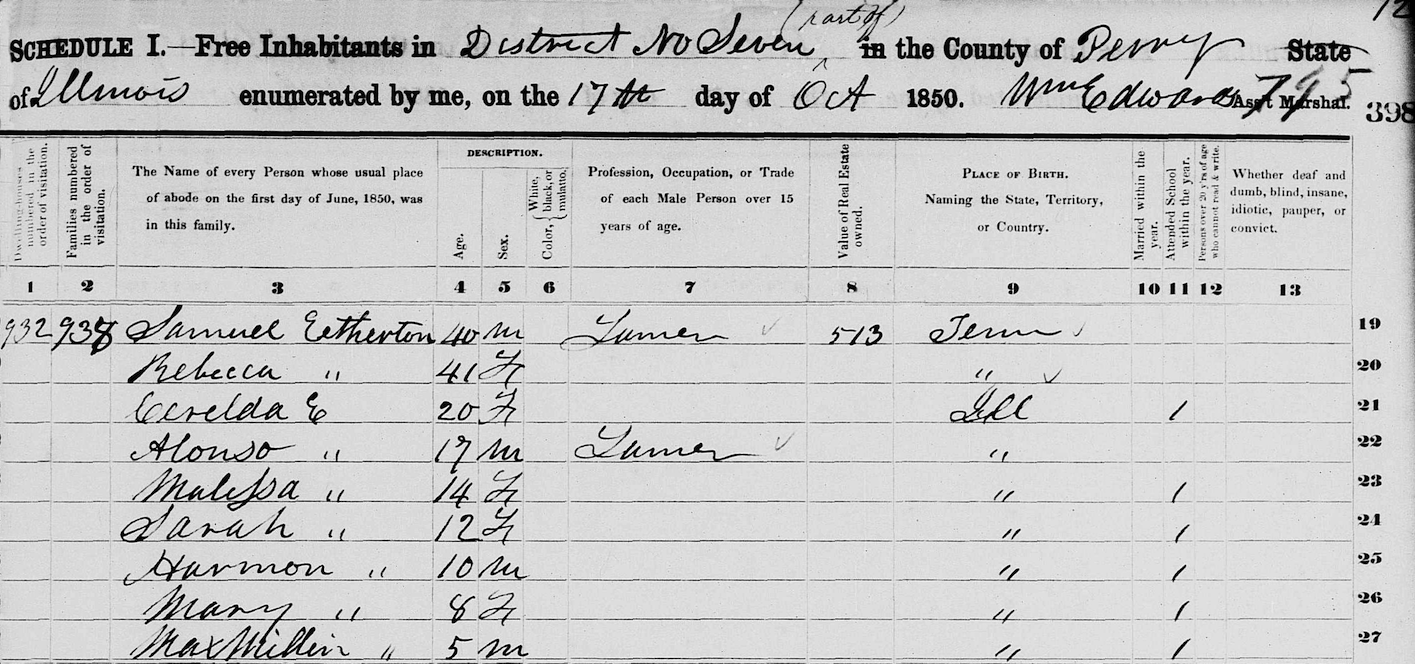 12
(part of)
SCHEDULE I.—Free Inhabitants in District No Seven in the County of Perry State
of Illinois enumerated by me, on the 17th day of Oct 1850. Wm Edwards Ass't Marshal. 795
398
Dwelling-houses numbered in the order of visitation.
Families numbered in the order of visitation.
The Name of every Person whose usual place of abode on the first day of June, 1850, was in this family.
DESCRIPTION.
Age.
Sex.
Color, { White, black, or mulatto. }
Profession, Occupation, or Trade of each Male Person over 15 years of age.
Value of Real Estate owned.
PLACE OF BIRTH. Naming the State, Territory, or Country.
Married within the year.
Attended School within the year.
Persons over 20 y'rs of age who cannot read & write.
Whether deaf and dumb, blind, insane, idiotic, pauper, or convict.
1 2 3 4 5 6 7 8 9 10 11 12 13
932 938 Samuel Eetherton 40 m Farmer 513 Tenn 19
Rebecca " 41 F " 20
E 20 F Ill / 21
Alonso " 17 m Farmer " 22
Malissa " 14 F " / 23
Sarah " 12 F " / 24
Harmon " 10 m " / 25
Mary " 8 F " / 26
MaxMillin " 5 m " / 27